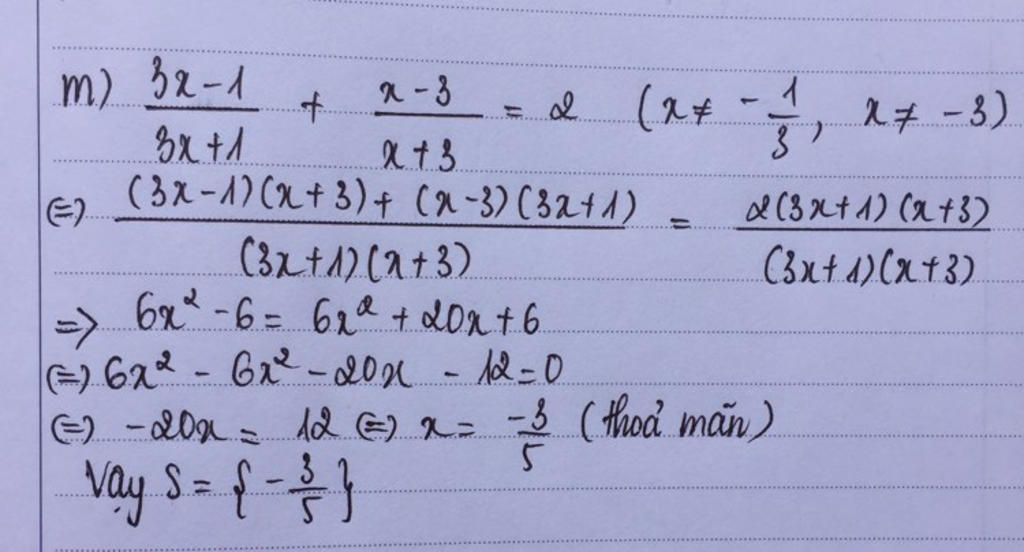 m) \frac{3x-1}{3x+1} + \frac{x-3}{x+3} = 2 (x ≠ -\frac{1}{3}, x ≠ -3)
(=) \frac{(3x-1)(x+3)+(x-3)(3x+1)}{(3x+1)(x+3)} = \frac{2(3x+1)(x+3)}{(3x+1)(x+3)}
=> 6x² - 6 = 6x² + 20x + 6
(=) 6x² - 6x² - 20x - 12 = 0
(=) -20x = 12 (=) x = \frac{-3}{5} (thoả mãn)
Vậy S = {-\frac{3}{5}}